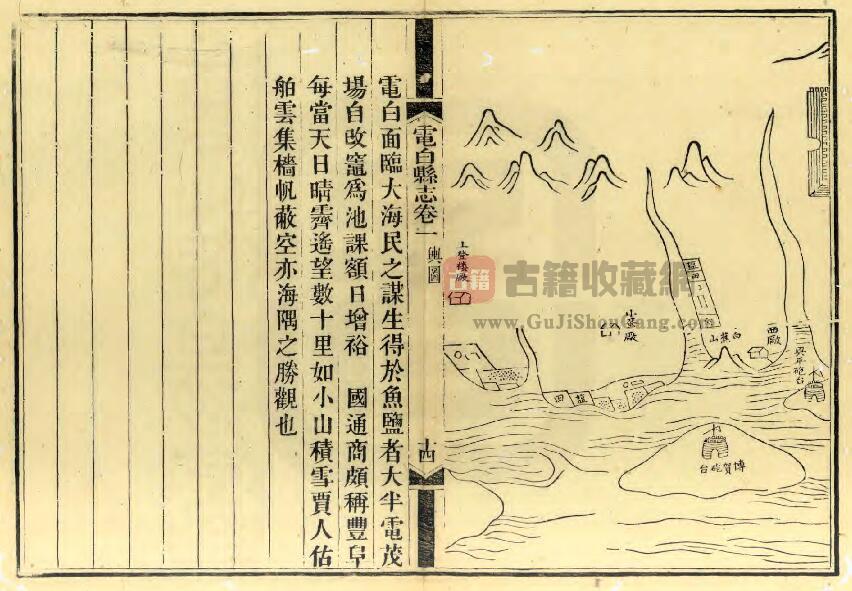 博賀砲台
西廠
白蕉山
上登樓廠
古籍 古籍收藏網
www.GuJiShouCang.com
電白縣志卷一
輿圖
十四
電白面臨大海民之謀生得於魚鹽者大半電茂
場自改竈爲池課額日增裕 國通商頗稱豐阜
每當天日晴霽遙望數十里如小山積雪賈人估
舶雲集檣帆蔽空亦海隅之勝觀也